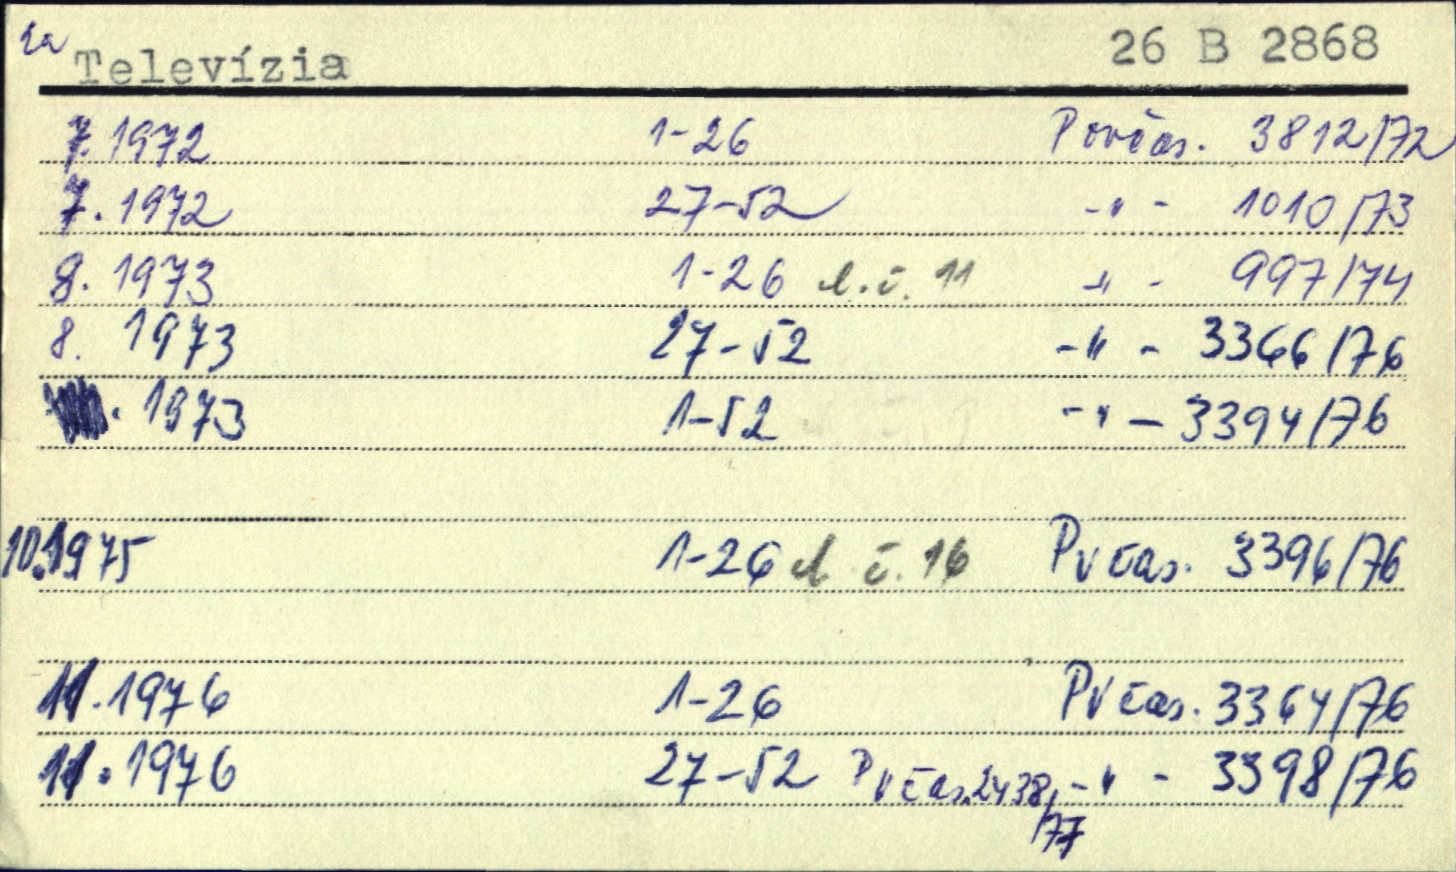 Televízia 26 B 2868
7. 1972 1-26 Pvčas. 3812/72
7. 1972 27-52 -"- 1010/73
8. 1973 1-26 ch. č. 11 -"- 997/74
8. 1973 27-52 -"- 3366/76
. 1973 1-52 -"- 3394/76
10.1975 1-26 ch. č. 16 Pvčas. 3396/76
11. 1976 1-26 Pvčas. 3364/76
11. 1976 27-52 Pvčas. 2438/77 -"- 3398/76